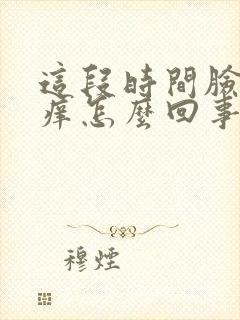 這段時間臉
痒怎麽回事
穆煙